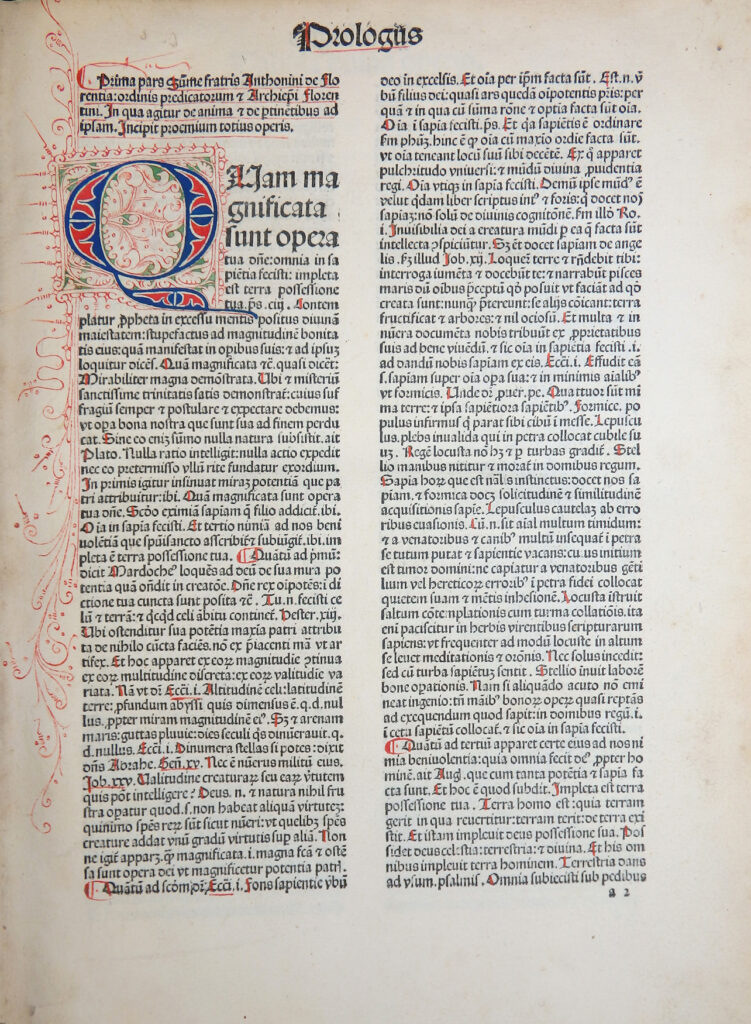 Prologus
Prima pars Sūme fratris Anthonini de Flo
rentia: ordinis predicatorum ⁊ Archiepī Floren
tini. In qua agitur de anima ⁊ de ptinētibus ad
ipsam. Incipit proemium totius operis.
QUam ma
gnificata
sunt opera
tua dn̄e: omnia in sa
piētia fecisti: impleta
est terra possessione
tua. ps. ciij. Contem
platur ꝓpheta in excessu mentis positus diuinā
maiestatem: stupefactus ad magnitudinē bonita
tis eius: quā manifestat in opibus suis: ⁊ ad ipsuʒ
loquitur dicēs. Quā magnificata ⁊c̄. quasi dicēt:
Mirabiliter magna demōstrata. Ubi ⁊ misteriū
sanctissime trinitatis satis demonstrat᷑: cuius suf
fragiū semper ⁊ postulare ⁊ expectare debemus:
vt opa bona nostra que sunt sua ad finem perdu
cat. Sine eo eniʒ sūmo nulla natura subsistit. ait
Plato. Nulla ratio intelligit: nulla actio expedit
nec eo pretermisso vllū rite fundatur exordium.
In primis igitur insinuat miraʒ potentiā que pa
tri attribuitur: ibi. Quā magnificata sunt opera
tua dn̄e. Scd̄o eximiā sapiam q̄ filio addicit᷑. ibi.
Oīa in sapīa fecisti. Et tertio nimiā ad nos beni
uolētiam que spūisancto ascribit᷑ ⁊ subiūgit᷑. ibi. im
pleta ē terra possessione tua. Quātū ad pͥmū:
dicit Mardocheꝰ loquēs ad deū de sua mira po
tentia quā on̄dit in creatōe. Dn̄e rex oīpotēs: i di
ctione tua cuncta sunt posita ⁊c̄. Tu.n. fecisti ce
lū ⁊ terrā: ⁊ qͥcqͥd celi ābitu continet᷑. Hester. xiij.
Ubi ostenditur sua potētia maxīa patri attribu
ta de nihilo cūcta faciēs. nō ex p̄iacenti mā vt ar
tifex. Et hoc apparet ex eoꝝ magnitudīe ꝯtinua
ex eoꝝ multitudine discreta: ex eoꝝ validitudie va
riata. Nā vt dt̄ Ecci. i. Altitudinē celi: latitudinē
terre: ꝓfundum abyssi quis dimensus ē. q.d. nul
lus. ꝓpter miram magnitudinē eiꝰ. Sʒ ⁊ arenam
maris: guttas pluuie: dies seculi qͥs dinūerauit. q.
d. nullus. Ecci. i. Dinumera stellas si potes: dixit
dn̄s Abrahe. Gen̄. xv. Nec ē nūerus militū eius.
Job. xxv. Ualitudinē creaturaꝝ seu eaꝝ ꝟtutem
quis pōt intelligere? Deus. n. ⁊ natura nihil fru
stra oꝑatur quod. s. non habeat aliquā virtuteʒ:
quinimo spēs reꝝ sūt sicut nūeri: vt quelibʒ spēs
creature addat vnū gradū virtutis sup aliā. Non
ne igit᷑ apparʒ. ꝙ magnificata. i. magna fcā ⁊ ostē
sa sunt opera dei vt magnificetur potentia patri.
Quātū ad scd̄m dr̄: Ecci. i. Fons sapientie ꝟbū
deo in excelsis. Et oīa per ip̄m facta sūt. Est. n. ꝟ
bū filius dei: quasi ars quedā oīpotentis pr̄is: per
quā ⁊ in qua cū sūma rōne ⁊ optīa facta sūt oīa.
Oīa ī sapīa fecisti. ps. Et qꝛ sapiētis ē ordinare
fm phūʒ. hinc ē ꝙ oīa cū maxīo ordie facta sūt.
vt oīa teneant locū suū sibi decētē. Ex q̄ apparet
pulchritudo vniuersi: ⁊ mūdū diuina ꝓuidentia
regi. Oīa vtiqꝫ in sapīa fecisti. Demū ip̄se mūdꝰ ē
velut qͥdam liber scriptus intꝰ ⁊ foris: q̄ docet noʒ
sapīaʒ: nō solū de diuinis cognitōnē. fm illd̄ Ro.
i. Inuisibilia dei a creatura mūdi p ea q̄ facta sūt
intellecta ꝯspiciūtur. Sʒ ⁊ docet sapīam de ange
lis. fʒ illud Job. xij. Loquere terre ⁊ rn̄debit tibi:
interroga iumēta ⁊ docebūt te: ⁊ narrabūt pisces
maris dū oibus p̄ceptū qd̄ posuit vt faciāt ad qd̄
creata sunt: nunqͣ p̄tereunt: se alijs cōicant: terra
fructificat ⁊ arbores: ⁊ nil ociosū. Et multa ⁊ in
nūera documēta nobis tribuūt ex ꝓprietatibus
suis ad bene viuēdū. ⁊ sic oīa in sapiētia fecisti. i.
ad dandū nobis sapiam ex eis. Ecci. i. Effudit eā
s. sapiam super oīa opa sua: ⁊ in minimis aīalibꝰ
vt formicis. Unde dr̄. puer. pe. Quattuor sūt mi
ma terre: ⁊ ipsa sapiētiora sapiētibꝰ. Formice. po
pulus infirmus q̄ parāt sibi cibū ī messe. Lepuscu
lus. plebs inualida qui in petra collocat cubile su
uʒ. Regē locusta nō hʒ ⁊ p turbas gradit᷑. Ste
llio manibus nititur ⁊ morat᷑ in domibus regum.
Sapīa hoꝝ que est nālis instinctus: docet nos sa
piam. ⁊ formica docʒ solicitudinē ⁊ similitudinē
acquisitionis sapīe. Lepusculus cautelaʒ ab erro
ribus euasionis. Cū. n. sit aīal multum timidum:
⁊ a venatoribus ⁊ canibꝰ multū insequat᷑ ī petra
se tutum putat ⁊ sapientie vacans: cuius initium
est timor domini: ne capiatur a venatoribus gēti
lium vel hereticoꝝ erroribꝰ ī petra fidei collocat
quietem suam ⁊ mētis inhesionē. Locusta īstruit
saltum cōtēplationis cum turma collatiōis. ita
eni paciscitur in herbis virentibus scripturarum
sapiens: vt frequenter ad modū locuste in altum
se leuet meditationis ⁊ orōnis. Nec solus incedit:
sed cū turba sapiētuʒ sentit. Stellio inuit laborē
bone opationis. Nam si aliquādo acuto nō emi
neat ingenio: tn̄ māibꝰ bonoꝝ opeꝝ quasi reptās
ad exequendum quod sapit: in domibus regū. i.
ī cetu sapiētū collocat᷑. ⁊ sic oīa in sapīa fecisti.
Quātū ad tertiū apparet certe eius ad nos ni
mia beniuolentia: quia omnia fecit deꝰ ꝓpter ho
minē. ait Augꝰ. que cum tanta potētia ⁊ sapīa fa
cta sunt. Et hoc ē quod subdit. Impleta est terra
possessione tua. Terra homo est: quia terram
gerit in qua reuertitur: terram terit: de terra exi
stit. Et istam impleuit deus possessione sua. Pos
sidet deus celestia: terrestria: ⁊ diuina. Et his om
nibus impleuit terra hominem. Terrestria dans
ad vsum. psalmis. Omnia subiecisti sub pedibus
a 2